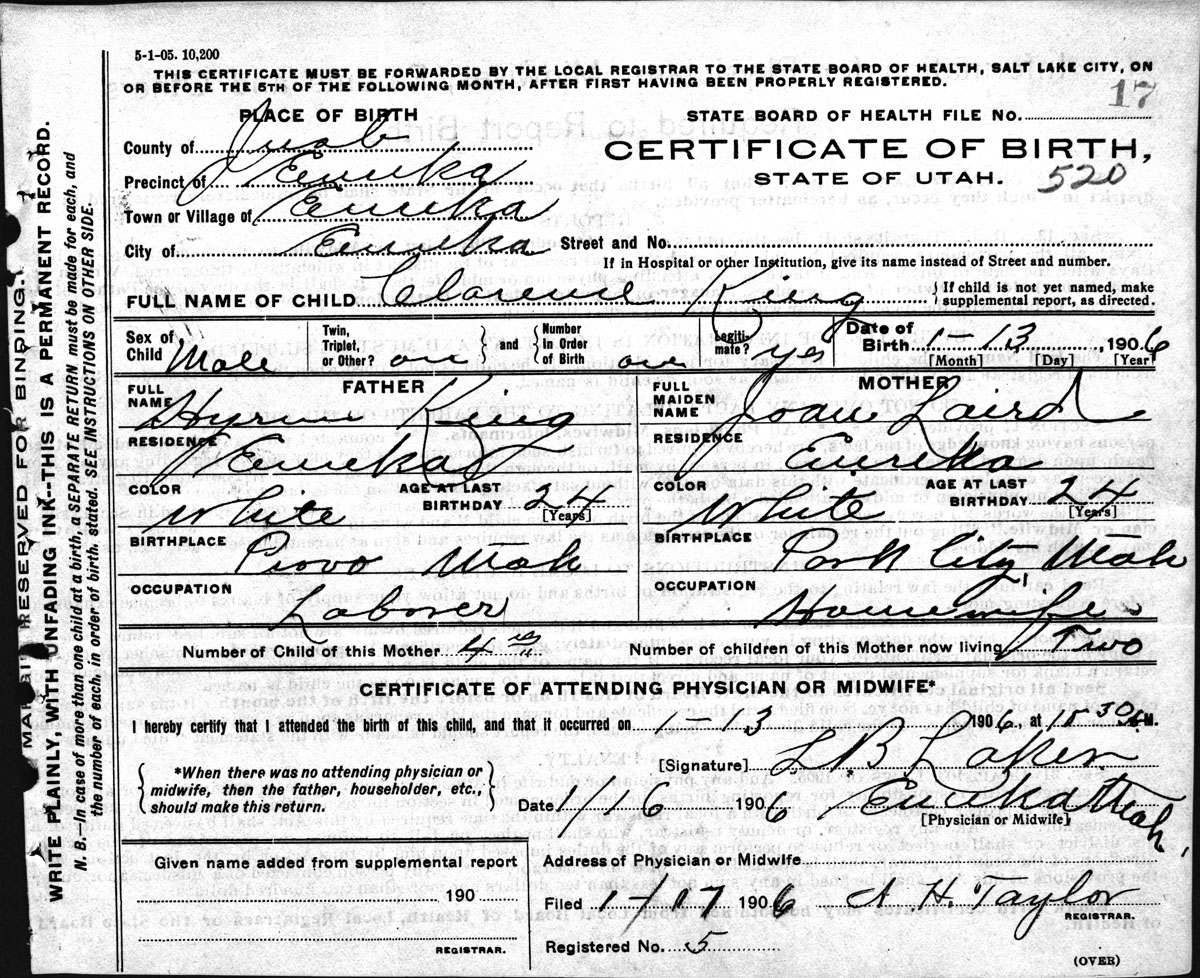 5-1-05. 10,200
THIS CERTIFICATE MUST BE FORWARDED BY THE LOCAL REGISTRAR TO THE STATE BOARD OF HEALTH, SALT LAKE CITY, ON
OR BEFORE THE 5TH OF THE FOLLOWING MONTH, AFTER FIRST HAVING BEEN PROPERLY REGISTERED.
17
PLACE OF BIRTH
STATE BOARD OF HEALTH FILE No.
County of Juab
CERTIFICATE OF BIRTH,
Precinct of Eureka
STATE OF UTAH. 520
Town or Village of Eureka
City of Eureka Street and No.
If in Hospital or other Institution, give its name instead of Street and number.
FULL NAME OF CHILD Clarence King
If child is not yet named, make
supplemental report, as directed.
Sex of Child Male
Twin, Triplet, or Other?
and
Number in Order of Birth
Legitimate? yes
Date of Birth 1 13, 1906
[Month] [Day] [Year]
FATHER
FULL NAME Hyrum King
MOTHER
FULL MAIDEN NAME Joan Laird
RESIDENCE Eureka
RESIDENCE Eureka
COLOR White
AGE AT LAST BIRTHDAY 24 [Years]
COLOR White
AGE AT LAST BIRTHDAY 24 [Years]
BIRTHPLACE Provo Utah
BIRTHPLACE Park City Utah
OCCUPATION Laborer
OCCUPATION Housewife
Number of Child of this Mother 4th
Number of children of this Mother now living Two
CERTIFICATE OF ATTENDING PHYSICIAN OR MIDWIFE*
I hereby certify that I attended the birth of this child, and that it occurred on 1-13 1906, at 10-30 M.
*When there was no attending physician or
midwife, then the father, householder, etc.,
should make this return.
[Signature] L B
Date 1 16 1906 Eureka Utah
[Physician or Midwife]
Given name added from supplemental report
190
REGISTRAR.
Address of Physician or Midwife
Filed 1-17 1906 A H. Taylor
REGISTRAR.
Registered No. 5
(OVER)
MARGIN RESERVED FOR BINDING.
WRITE PLAINLY, WITH UNFADING INK--THIS IS A PERMANENT RECORD.
N. B.--In case of more than one child at a birth, a SEPARATE RETURN must be made for each, and
the number of each, in order of birth, stated. SEE INSTRUCTIONS ON OTHER SIDE.